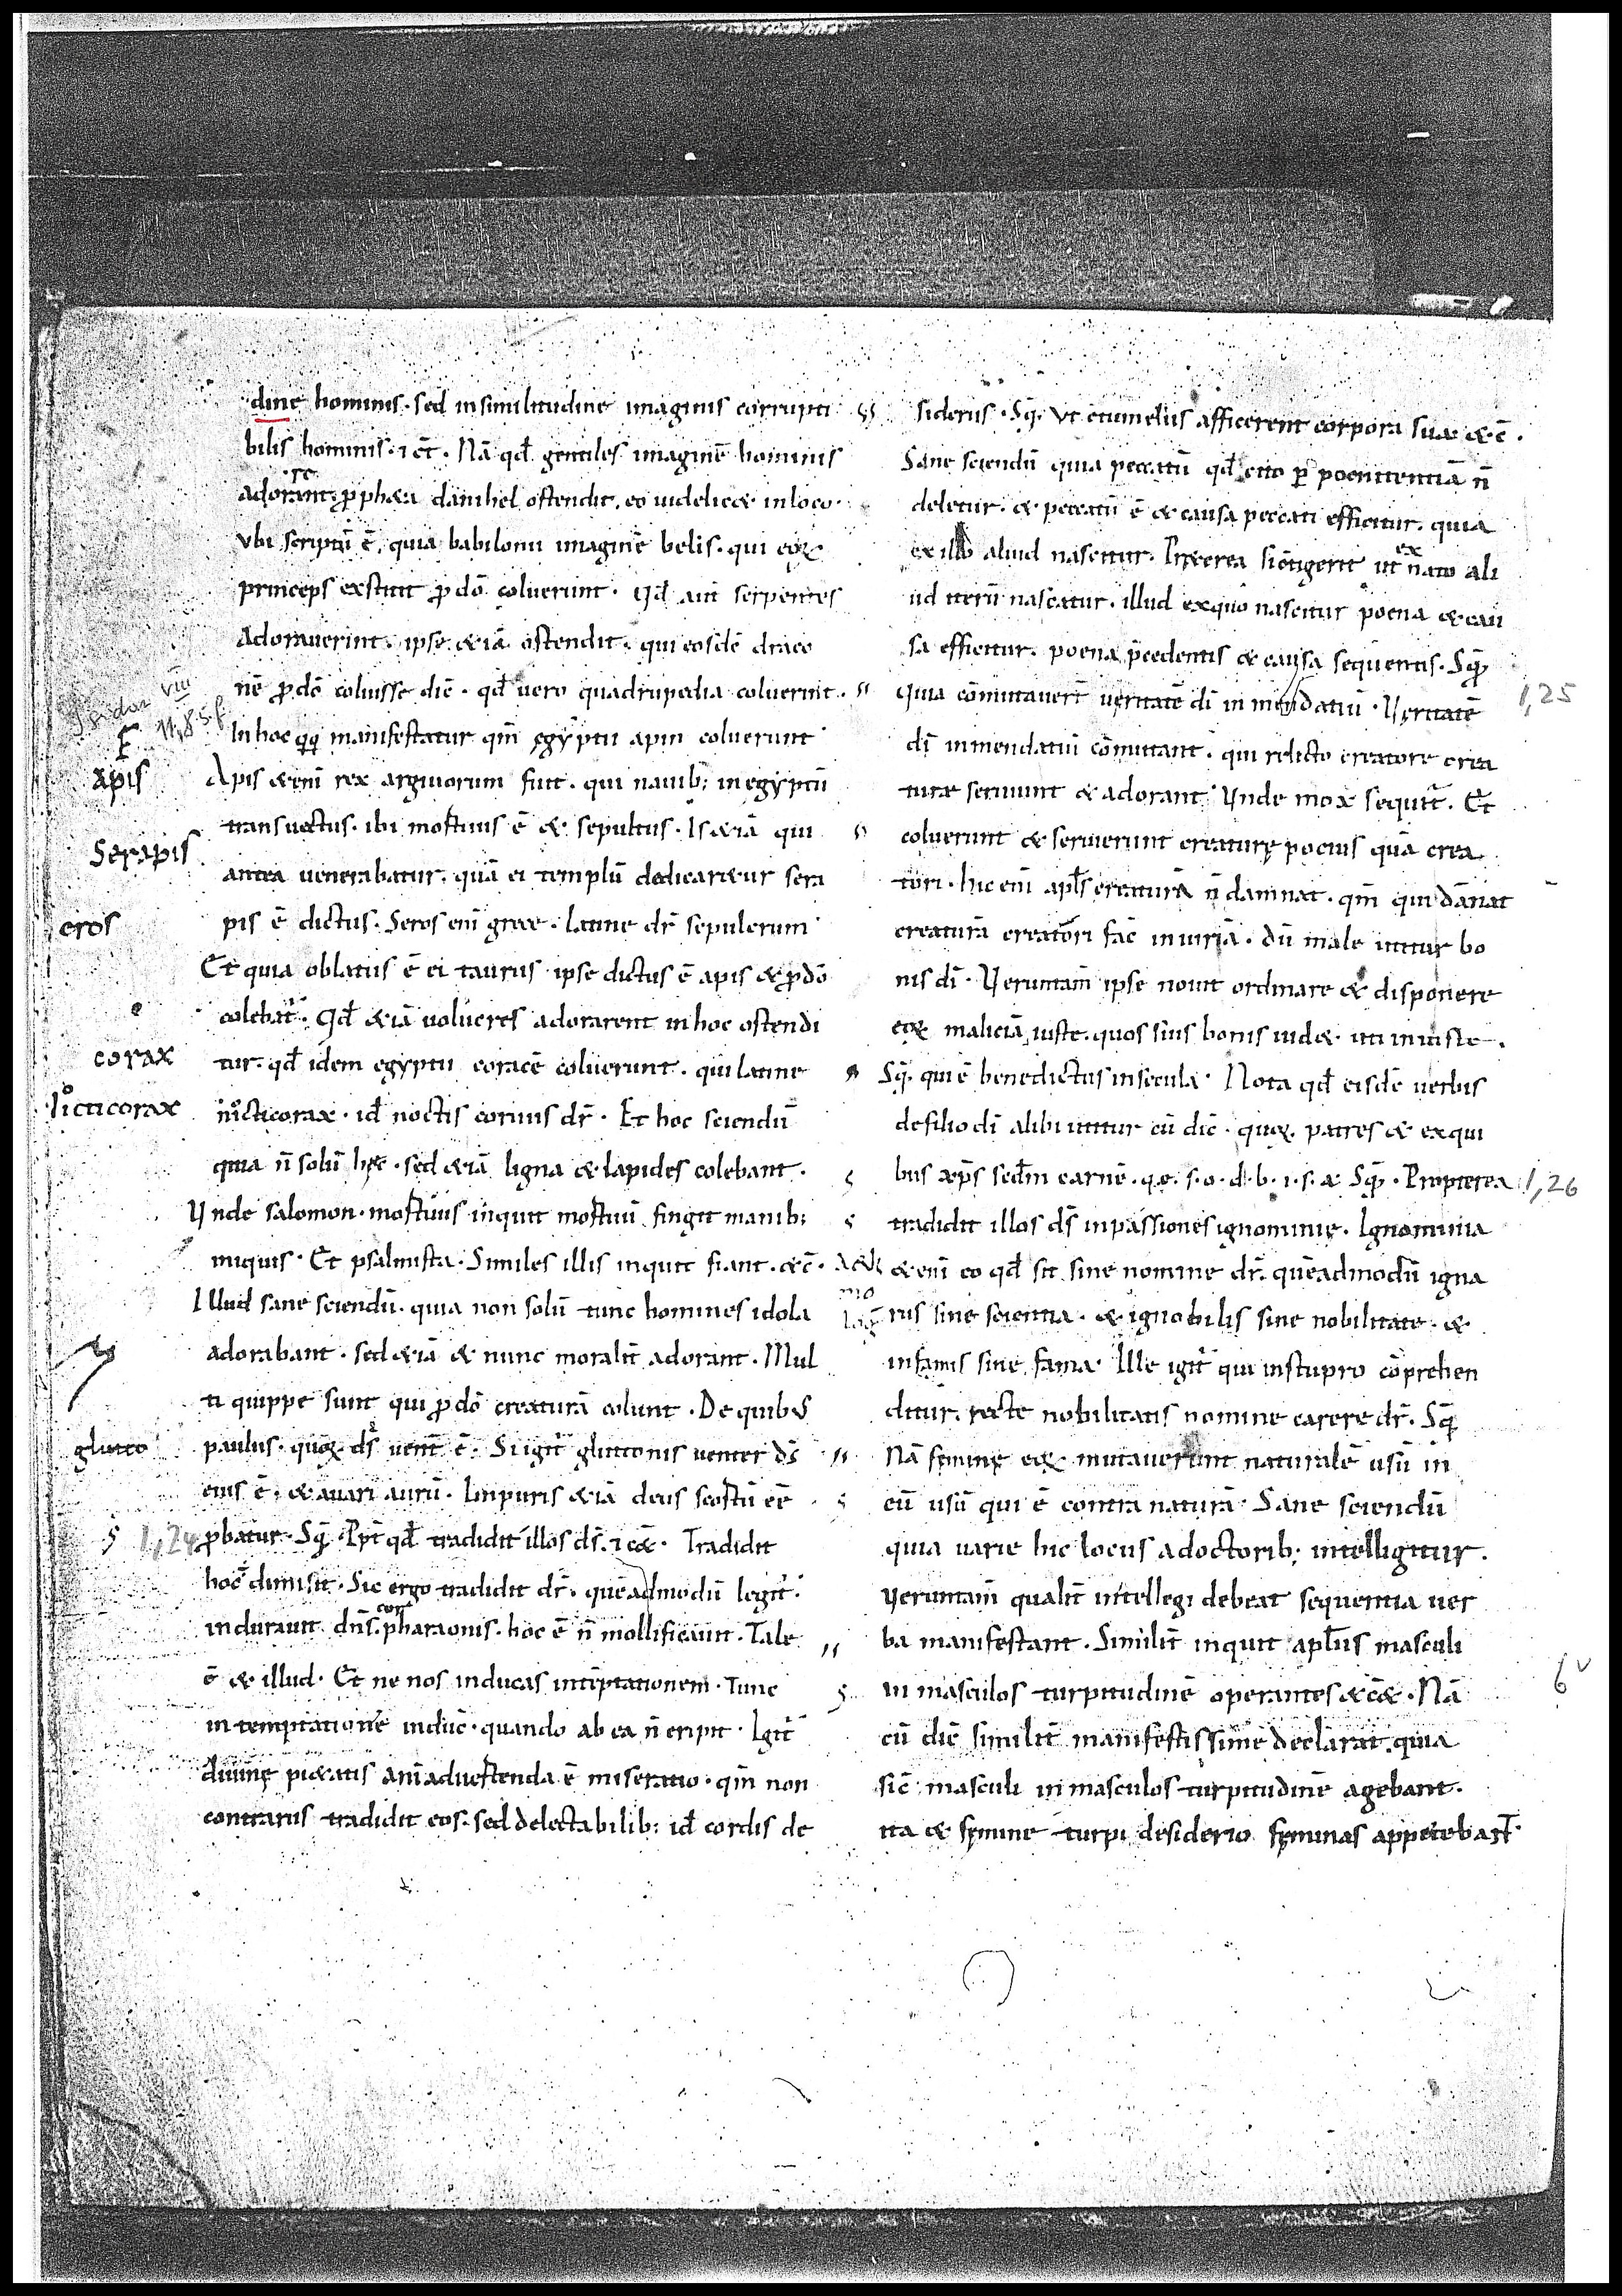 dine hominis · sed in similitudine imaginis corrupti
bilis hominis · ⁊ cet̄ · Nā qd̄ gentiles imaginē hominis
adorarent · ꝓpheta danihel ostendit · eo uidelicet in loco ·
Vbi scriptū ē · quia babilonii imaginē belis · qui eoꝝ
princeps exstitit ꝓ dō coluerunt · Qd̄ aūt serpentes
Adorauerint · ipse etiā ostendit · qui eosdē draco
nē ꝓ dō coluisse dic̄ · qd̄ uero quadrupedia coluerint ·
In hoc qq̣ manifestatur qm̄ ęgyptii apin coluerunt
Apis eteni rex argiuorum fuit · qui nauib; in egyptū
transuectus · ibi mortuus ē et sepultus · Is etiā qui
antea uenerabatur · quā ei templū dedicaretur sera
pis ē dictus · Seros eni grece · latine dr̄ sepulcrum
Et quia oblatus ē ei taurus ipse dictus ē apis et ꝓ dō
colebat̄ · Qd̄ etiā uolucres adorarent in hoc ostendi
tur · qd̄ idem egyptii coracē coluerunt · qui latine
nicticorax · id̄ noctis coruus dr̄ · Et hoc sciendū
quia n̄ solū hęc · sed etiā ligna et lapides colebant ·
Vnde salomon · mortuus inquit mortuū fingit manib;
iniquis · Et psalmista · Similes illis inquit fiant · etc̄ ·
Illud sane sciendū · quia non solū tunc homines idola
adorabant · sed etiā et nunc moralit̄ adorant · Mul
ti quippe sunt qui ꝓ dō creaturā colunt · De quibus
paulus · quoꝝ ds̄ uent̄ ē · Si igit̄ gluttonis uenter ds̄
eius ē · et auari aurū · Impuris etiā deus scortū eē
ꝓbatur · Sq̄ · Ppt̄ qd̄ tradidit illos ds̄ · ⁊ cet̄ · Tradidit
hoc̄ dimisit · Sic ergo tradidit dr̄ · quēadmodū legit̄ ·
indurauit dn̄s cor pharaonis · hoc ē n̄ mollificauit · Tale
ē et illud · Et ne nos inducas in tēptationem · Tunc
in temptationē induc̄ · quando ab ea n̄ eripit · Igit̄
diuinę pietatis animaduertenda ē miseratio · qm̄ non
contrariis tradidit eos · sed delectabilib; id̄ cordis de
viii
Isidor
11,85f
apis
Serapis
eros
corax
nicticorax
glutto
1,24
siderus · Sq̄ · Vt cōtumeliis afficerent corpora sua et c̄ ·
Sane sciendū quia peccatū qd̄ cito ꝑ poenitentiā n̄
deletur · et peccatū ē et causa peccati efficitur · quia
ex illo aliud nascitur · Preterea si cōtigerit ut ex nato ali
ud iterū nascatur · illud ex quo nascitur poena et cau
sa efficitur · poena p̄cedentis et causa sequentis · Sq̄
Quia cōmutauer̄ ueritatē di in mendatiū · Veritatē
di in mendatiū cōmutant · qui relicto creatore crea
turae seruiunt et adorant · Vnde mox sequit̄ · Et
coluerunt et seruierunt creaturę pocius quā crea
tori · hic eni apl̄s creaturā n̄ damnat · qm̄ qui dānat
creaturā creatori fac̄ iniuriā · dū male utitur bo
nis di · Veruntam̄ ipse nouit ordinare et disponere
eoꝝ maliciā iuste · quos suis bonis uidet uti iniuste ·
Sq̄ · qui ē benedictus in secula · Nota qd̄ eisdē uerbis
de filio di alibi utitur cū dic̄ · quoꝝ patres et ex qui
bus xp̄s secdm̄ carnē · q · e · s · o · d · b · i · s · a · Sq̄ · Propterea
tradidit illos ds̄ in passiones ignominię · Ignominia
eteni eo qd̄ sit sine nomine dr̄ · quēadmodū igna
rus sine scientia · et ignobilis sine nobilitate · et
infamis sine fama · Ille igit̄ qui in stupro cōprehen
ditur · recte nobilitatis nomine carere dr̄ · Sq̄
Nā feminę eoꝝ mutauerunt naturalē usū in
eū usū qui ē contra naturā · Sane sciendū
quia uarie hic locus a doctorib; intelligitur ·
Veruntam̄ qualit̄ intellegi debeat sequentia uer
ba manifestant · Similit̄ inquit apl̄us masculi
in masculos turpitudinē operantes et cet̄ · Nā
cū dic̄ similit̄ manifestissime declarat · quia
sic̄ masculi in masculos turpitudinē agebant ·
ita et femine turpi desiderio feminas appetebant ·
1,25
1,26
6v